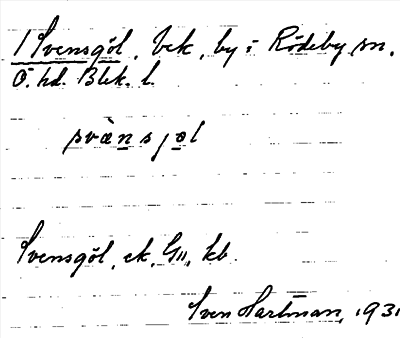 1 Svensgöl, bek, by i Rödeby sn.
Ö. hd. Blek. l.
svæ̀nsjøl
Svensgöl, ek, G11, kb.
Sven Hartman, 1931